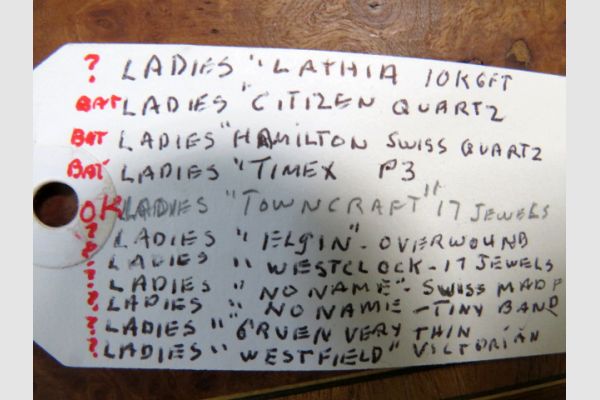 ? LADIES "LATHIA 10K GFT
BAT LADIES "CITIZEN QUARTZ
BAT LADIES "HAMILTON SWISS QUARTZ
BAT LADIES "TIMEX P3
OK LADIES "TOWNCRAFT" 17 JEWELS
? LADIES "ELGIN" - OVERWOUND
? LADIES "WESTCLOCK - 17 JEWELS
? LADIES "NO NAME" - SWISS MADE
? LADIES "NO NAME - TINY BAND
? LADIES "GRUEN VERY THIN
? LADIES "WESTFIELD" VICTORIAN